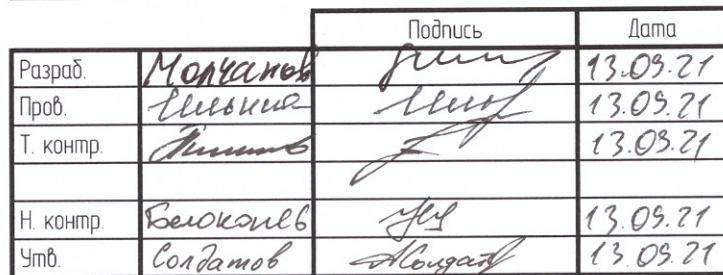 Подпись Дата
Разраб. Молчанов 13.09.21
Пров. Илькив 13.09.21
Т. контр. 13.09.21
Н. контр. Белоконев 13.09.21
Утв. Солдатов 13.09.21